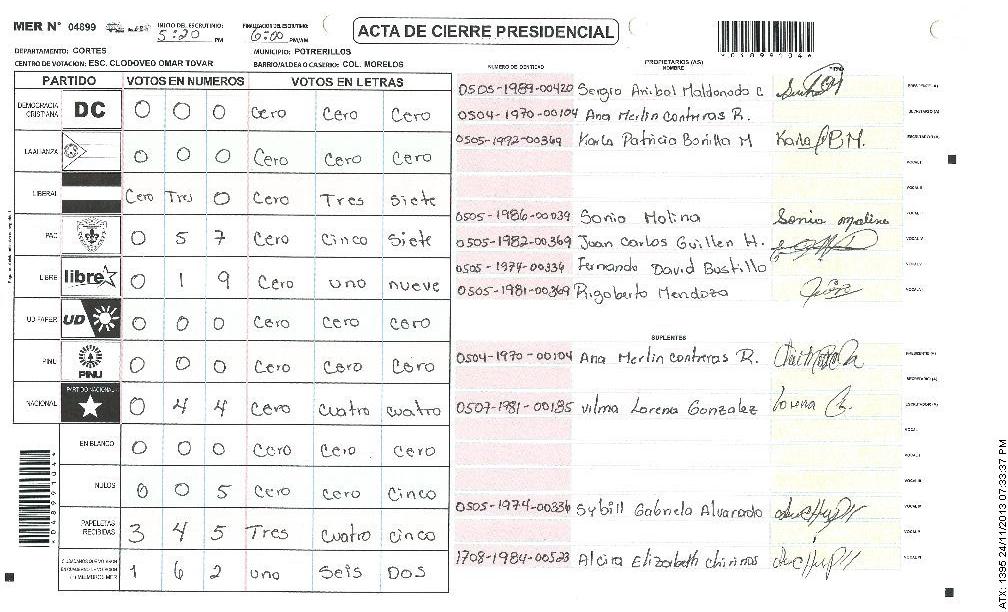 MER N° 04899 INICIO DEL ESCRUTINIO: 5:20 PM FINALIZACION DEL ESCRUTINIO: 6:00 PM/AM ACTA DE CIERRE PRESIDENCIAL
DEPARTAMENTO: CORTES MUNICIPIO: POTRERILLOS
CENTRO DE VOTACION: ESC. CLODOVEO OMAR TOVAR BARRIO/ALDEA O CASERÍO: COL. MORELOS
PARTIDO VOTOS EN NUMEROS VOTOS EN LETRAS
DEMOCRACIA CRISTIANA DC 0 0 0 Cero Cero Cero
LA ALIANZA 0 0 0 Cero Cero Cero
LIBERAL Cero Tres 0 Cero Tres Siete
PAC 0 5 7 Cero Cinco Siete
LIBRE libre 0 1 9 Cero uno nueve
UD FAPER UD 0 0 0 Cero Cero Cero
PINU PINU 0 0 0 Cero Cero Cero
NACIONAL PARTIDO NACIONAL 0 4 4 Cero cuatro cuatro
EN BLANCO 0 0 0 Cero Cero Cero
NULOS 0 0 5 Cero Cero Cinco
PAPELETAS RECIBIDAS 3 4 5 Tres cuatro cinco
1 6 2 uno Seis Dos
NUMERO DE IDENTIDAD PROPIETARIOS (AS)
NOMBRE
0505-1989-00420 Sergio Anibal Maldonado C
0504-1970-00104 Ana Merlin Contreras R.
0505-1992-00369 Karla Patricia Bonilla M Karla P B M.
0505-1986-00039 Sonia Molina Sonia Molina
0505-1982-00369 Juan Carlos Guillen H.
0505-1974-00334 Fernando David Bustillo
0505-1981-00369 Rigoberto Mendoza
SUPLENTES
0504-1970-00104 Ana Merlin Contreras R.
0507-1981-00185 Vilma Lorena Gonzalez Lorena G.
0505-1974-00336 Sybill Gabriela Alvarado
1708-1984-00523 Alcira Elizabeth Chirinos
ATX: 1395 24/11/2013 07:33:37 PM